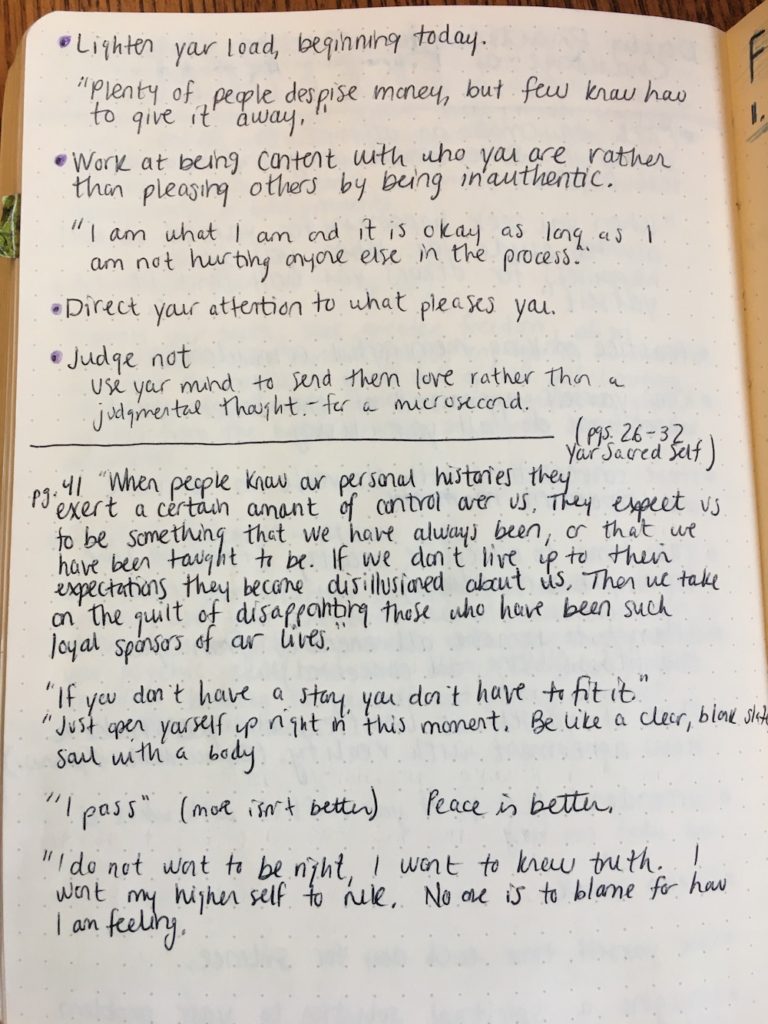 • Lighten your load, beginning today.
"Plenty of people despise money, but few know how
to give it away."
• Work at being content with who you are rather
than pleasing others by being inauthentic.
"I am what I am and it is okay as long as I
am not hurting anyone else in the process."
• Direct your attention to what pleases you.
• Judge not
use your mind to send them love rather than a
judgmental thought - for a microsecond.
(pgs. 26-32
Your Sacred Self)
pg. 41 "When people know our personal histories they
exert a certain amount of control over us. They expect us
to be something that we have always been, or that we
have been taught to be. If we don't live up to their
expectations they become disillusioned about us. Then we take
on the guilt of disappointing those who have been such
loyal sponsors of our lives."
"If you don't have a story, you don't have to fit it"
"Just open yourself up right in this moment. Be like a clear, blank slate
soul with a body
"I pass" (more isn't better) Peace is better.
"I do not want to be right, I want to know truth. I
want my higher self to rule. No one is to blame for how
I am feeling.
F
1.